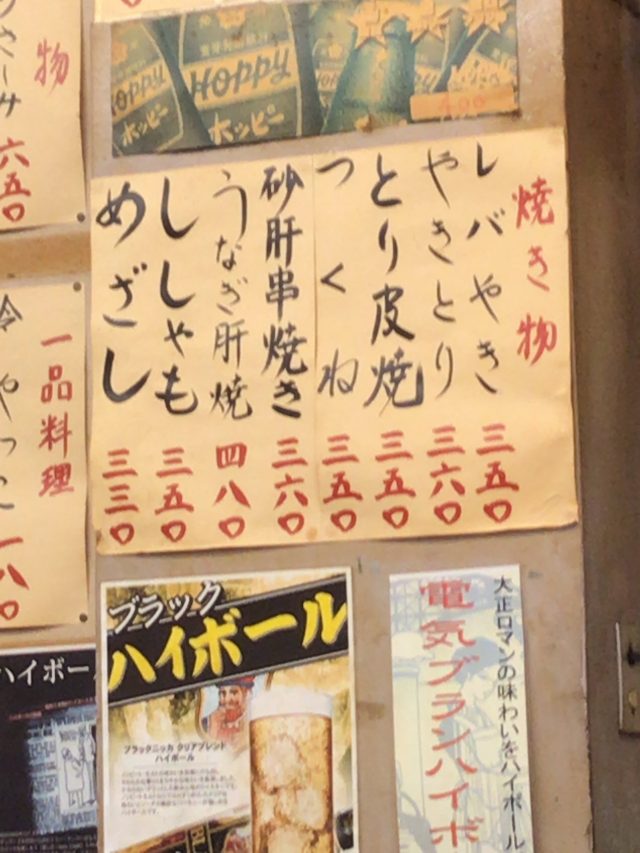 HOPPY
ホッピー
400
焼き物
レバやき 三五〇
やきとり 三六〇
とり皮焼 三五〇
つくね 三五〇
砂肝串焼き 三六〇
うなぎ肝焼 四八〇
ししゃも 三五〇
めざし 三三〇
物
六五〇
一品料理
冷やっこ
一八〇
ハイボー
ブラック
ハイボール
ブラックニッカ クリアブレンド
ハイボール
大正ロマンの味わいをハイボール
電気ブランハイボ